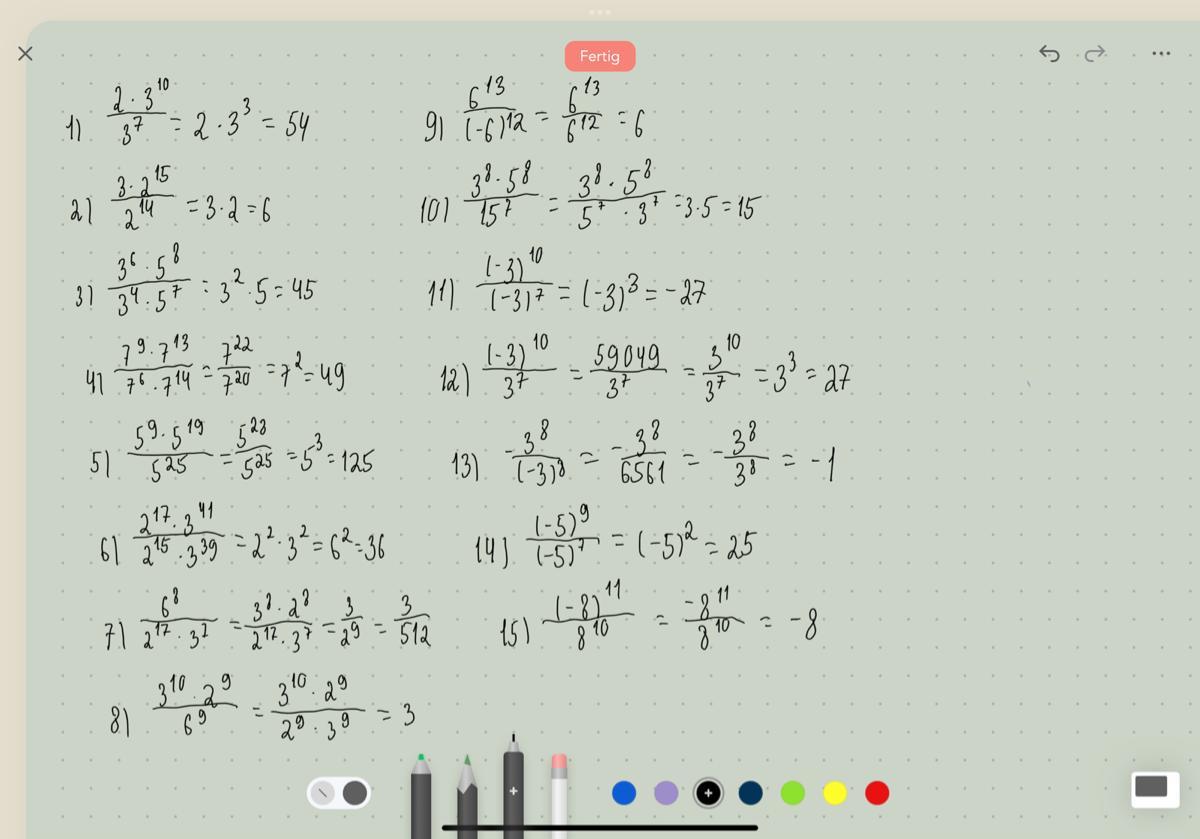 Fertig
1) \frac{2 \cdot 3^{10}}{3^7} = 2 \cdot 3^3 = 54
2) \frac{3 \cdot 2^{15}}{2^{14}} = 3 \cdot 2 = 6
3) \frac{3^6 \cdot 5^8}{3^4 \cdot 5^7} = 3^2 \cdot 5 = 45
4) \frac{7^9 \cdot 7^{13}}{7^6 \cdot 7^{14}} = \frac{7^{22}}{7^{20}} = 7^2 = 49
5) \frac{5^9 \cdot 5^{19}}{5^{25}} = \frac{5^{28}}{5^{25}} = 5^3 = 125
6) \frac{2^{17} \cdot 3^{41}}{2^{15} \cdot 3^{39}} = 2^2 \cdot 3^2 = 6^2 = 36
7) \frac{6^8}{2^{17} \cdot 3^7} = \frac{3^8 \cdot 2^8}{2^{17} \cdot 3^7} = \frac{3}{2^9} = \frac{3}{512}
8) \frac{3^{10} \cdot 2^9}{6^9} = \frac{3^{10} \cdot 2^9}{2^9 \cdot 3^9} = 3
9) \frac{6^{13}}{(-6)^{12}} = \frac{6^{13}}{6^{12}} = 6
10) \frac{3^8 \cdot 5^8}{15^7} = \frac{3^8 \cdot 5^8}{5^7 \cdot 3^7} = 3 \cdot 5 = 15
11) \frac{(-3)^{10}}{(-3)^7} = (-3)^3 = -27
12) \frac{(-3)^{10}}{3^7} = \frac{59049}{3^7} = \frac{3^{10}}{3^7} = 3^3 = 27
13) -\frac{3^8}{(-3)^8} = -\frac{3^8}{6561} = -\frac{3^8}{3^8} = -1
14) \frac{(-5)^9}{(-5)^7} = (-5)^2 = 25
15) \frac{(-8)^{11}}{8^{10}} = \frac{-8^{11}}{8^{10}} = -8